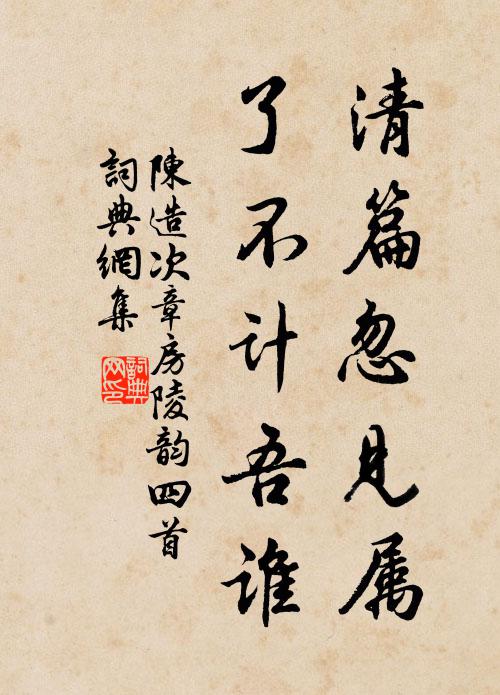 清篇忽见属
了不计吾谁
陳造次章房陵韵四首
詞典網集
詞典
网印